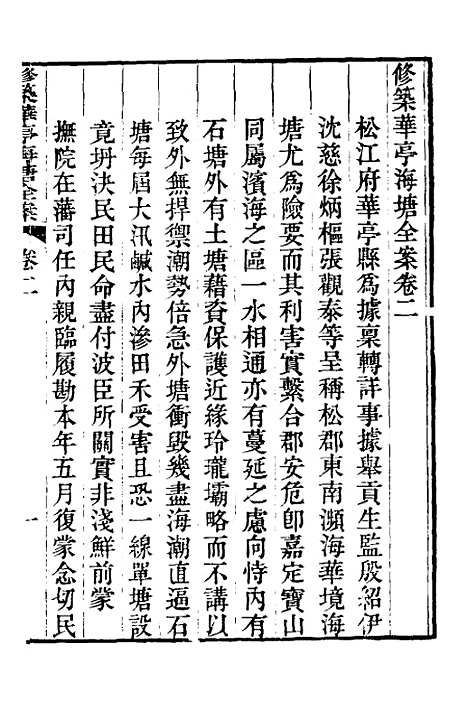 修築華亭海塘全案卷二
松江府華亭縣爲據稟轉詳事據舉貢生監殷紹伊
沈慈徐炳樞張觀泰等呈稱松郡東南瀕海華境海
塘尤爲險要而其利害實繫台郡安危卽嘉定寶山
同屬濱海之區一水相通亦有蔓延之慮向恃內有
石塘外有土塘藉資保護近緣玲瓏壩略而不講以
致外無捍禦潮勢倍急外塘衝毀幾盡海潮直逼石
塘每屆大汛鹹水內滲田禾受害且恐一線單塘設
竟坍決民田民命盡付波臣所關實非淺鮮前蒙
撫院在藩司任內親臨履勘本年五月復蒙念切民
修築華亭海塘全案 卷二 一